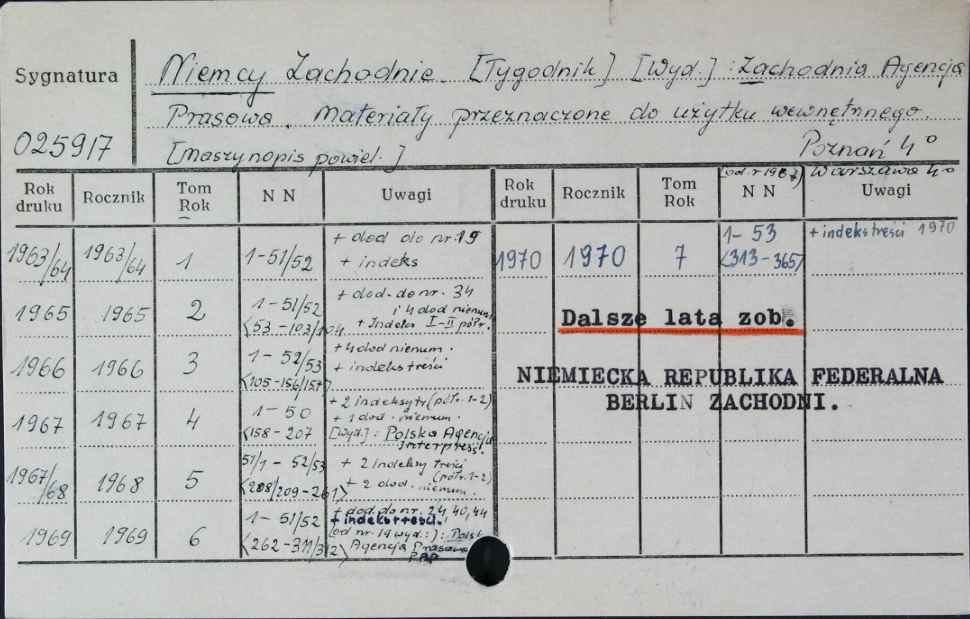 Sygnatura
025917
Niemcy Zachodnie. [Tygodnik] [Wyd.]: Zachodnia Agencja
Prasowa. Materiały przeznaczone do użytku wewnętrznego.
[Maszynopis powiel.] Poznań 4°
[od r 1967] Warszawa 4°
Rok druku Rocznik Tom Rok N N Uwagi Rok druku Rocznik Tom Rok N N Uwagi
1963/64 1963/64 1 1-51/52 + dod do nr. 19
+ indeks
1965 1965 2 1-51/52 + dod. do nr. 34
i 4 dod nienum.
<53-103/104 + Indeks I-II półr.
1966 1966 3 1-52/53 + 4 dod nienum.
<105-156/157> + indeks treści
1967 1967 4 1-50 + 2 indeksy tr (półr. 1-2)
+ 1 dod. nienum.
<158-207 [Wyd.]: Polska Agencja
Interpress.
1967/68 1968 5 51/1-52/53 + 2 indeksy treści
(półr. 1-2)
<208/209-261> + 2 dod. nienum.
1969 1969 6 1-51/52 + dod. do nr. 24, 40, 44
+ indeks treści.
(od nr. 19 wyd.:): Polsk
<262-311/312> Agencja Prasowa
PAP
1970 1970 7 1-53 + indeks treści 1970
<313-365>
Dalsze lata zob.
NIEMIECKA REPUBLIKA FEDERALNA
BERLIN ZACHODNI.